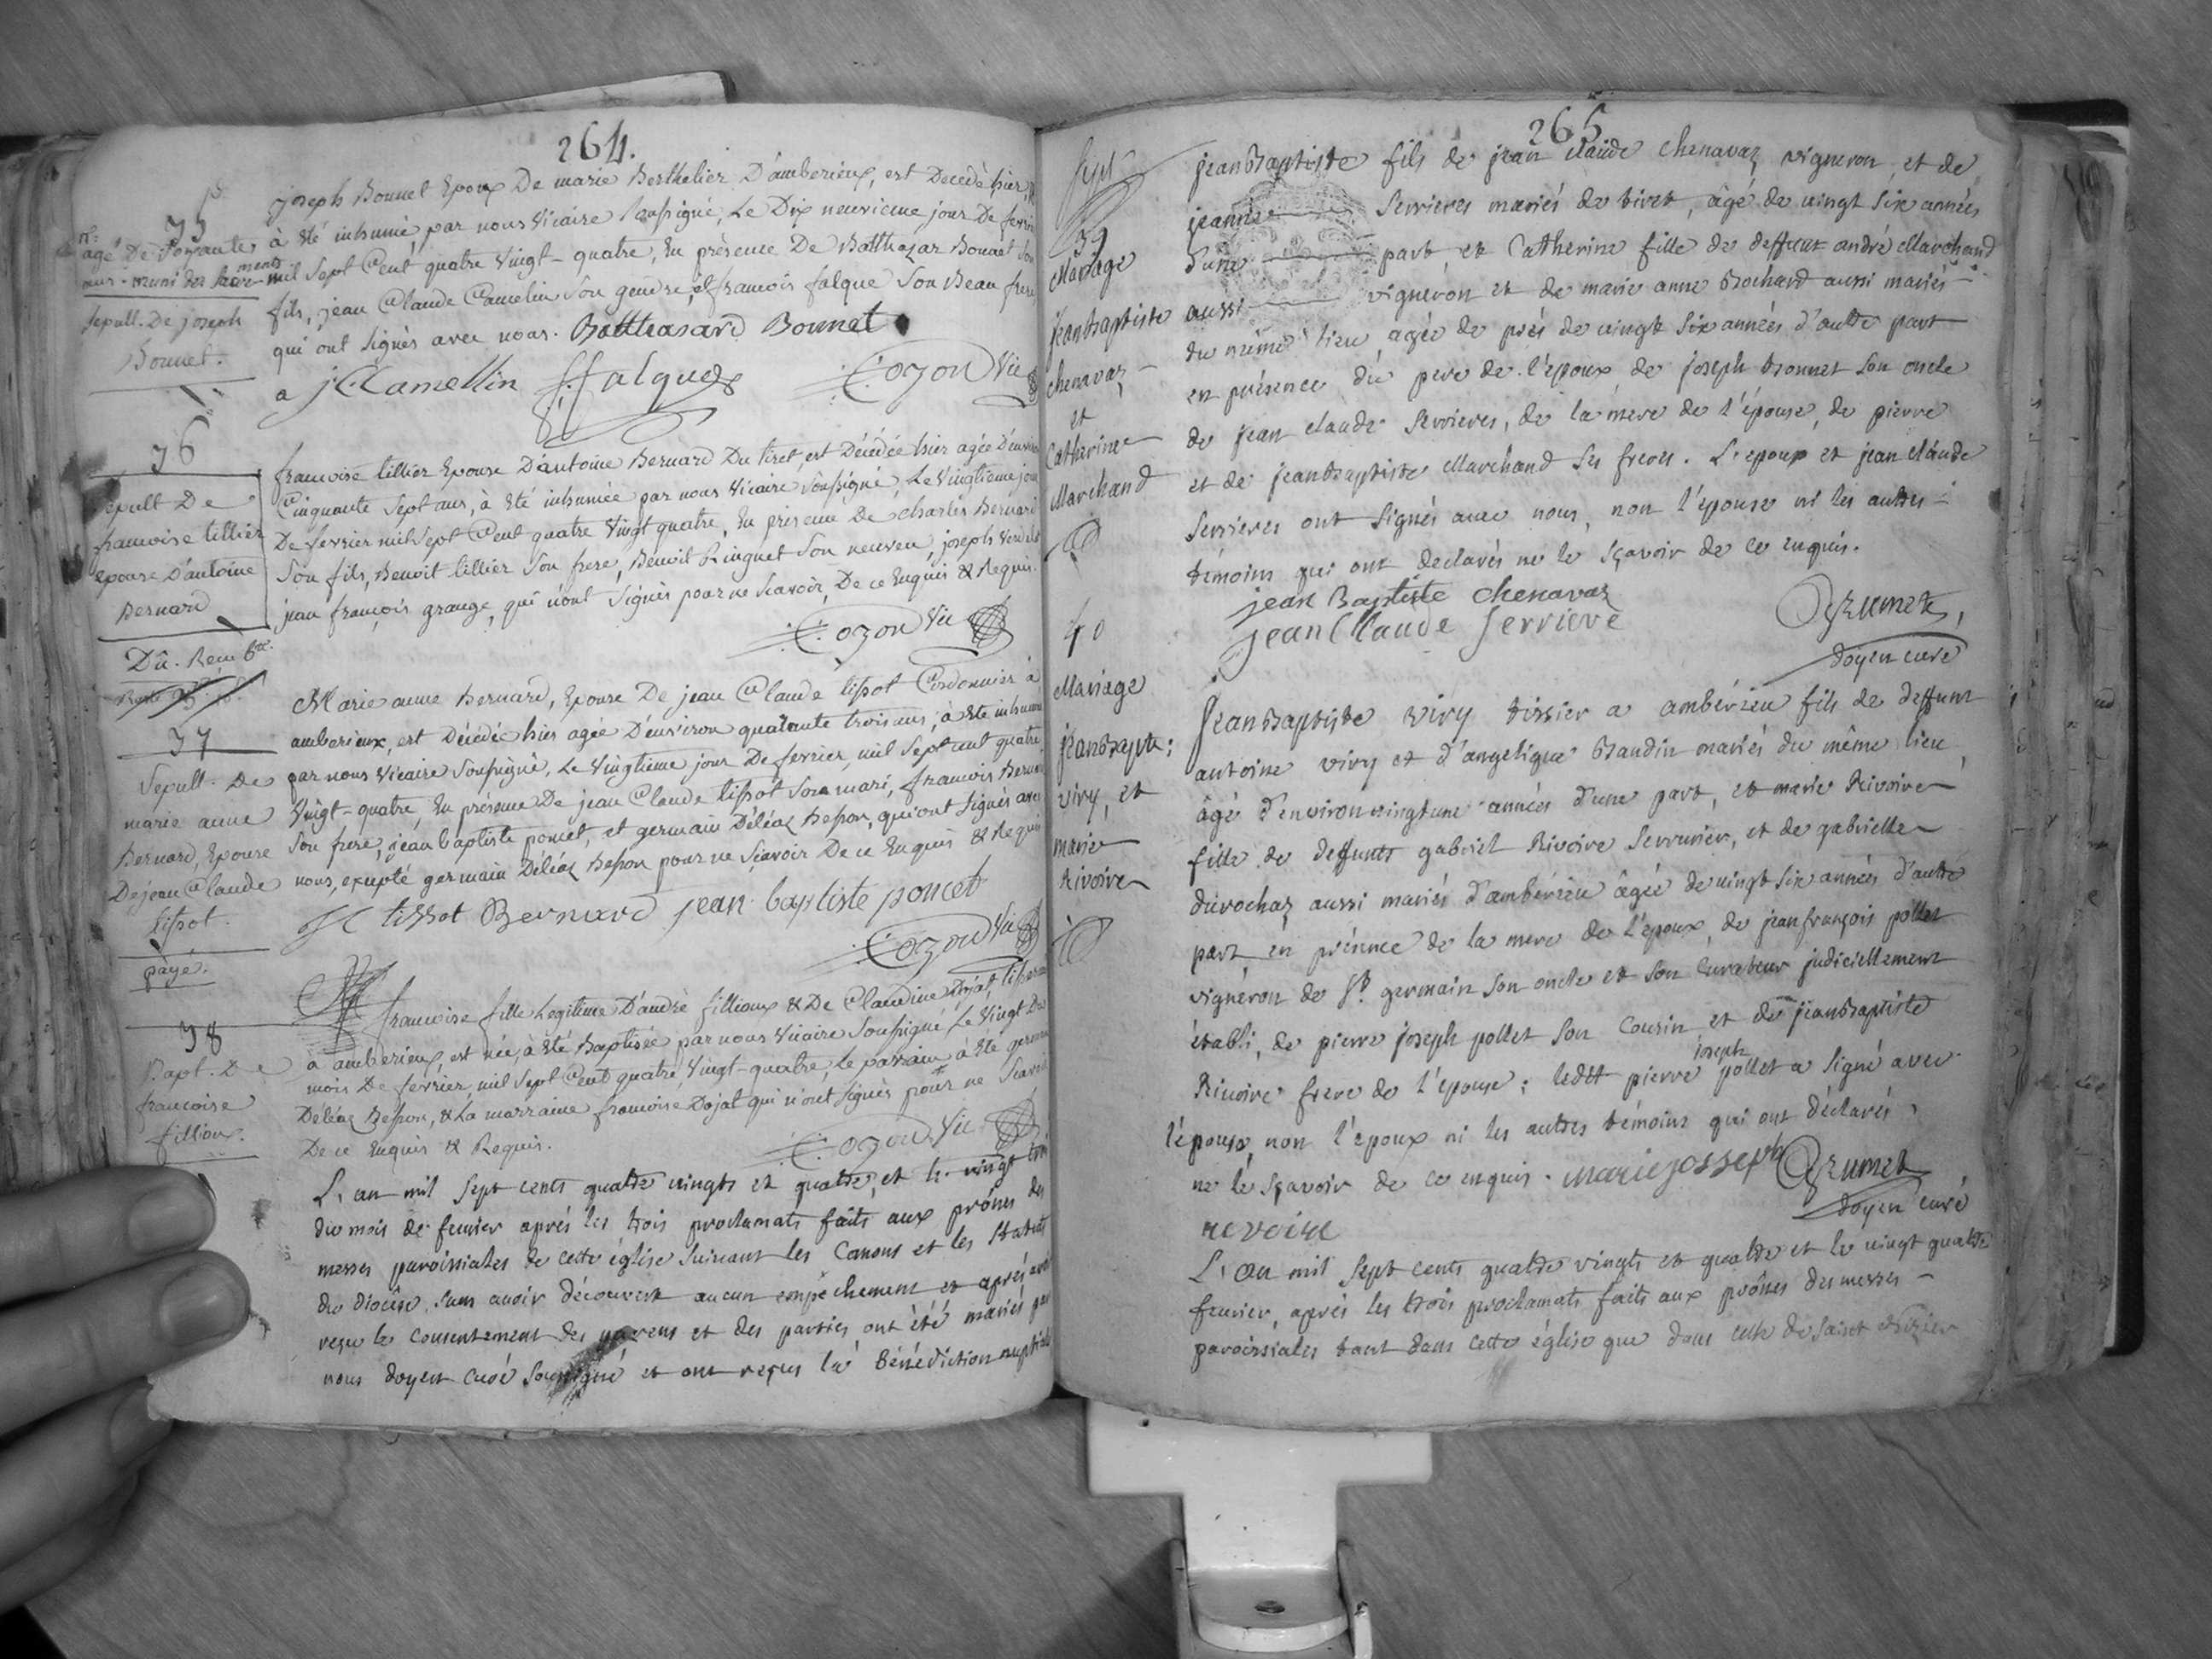 264.
35
agé De Soixante
ans. muni des sacrements
sepult. De joseph
Bonnet.
joseph Bonnet Epoux De marie Berthelier D'amberieux, est Decedé hier,
à été inhumé par nous Vicaire soussigné, Le Dix neuvieme jour De fevrier
mil Sept Cent quatre Vingt-quatre, En présence De Balthazar Bonnet son
fils, jean Claude Camelin Son gendre, et francois falque Son Beau frere
qui ont Signés avec nous. Balthasard Bonnet
j C Camellin f falque Cozon Vic
36
sepult De
francoise tillier
epouse D'antoine
Bernard
Dû. Reçu
francoise tillier Epouse D'antoine Bernard Du tiret, est Décédée hier agée D'environ
Cinquante Sept ans, à été inhumée par nous Vicaire Soussigné, Le Vingtieme jour
De fevrier mil Sept Cent quatre Vingt quatre, En présence De charles Bernard
Son fils, Benoit tillier Son frere, Benoit Ringuet Son neuveu, joseph
jean françois grange, qui n'ont Signés pour ne Scavoir, De ce Enquis & Requis.
Cozon Vic
37
Sepult. De
marie anne
Bernard, Epouse
De jean Claude
tissot.
payé.
Marie anne Bernard, Epouse De jean Claude tissot Cordonnier à
amberieux, est Décédée hier agée D'environ quarante trois ans, à été inhumée
par nous Vicaire Soussigné, Le Vingtieme jour De fevrier, mil Sept cent quatre
Vingt-quatre, En présence De jean Claude tissot Son mari, francois Bernard
Son frere, jean baptiste poncet, et germain Déléaz Besson, qui ont Signés avec
nous, excepté germain Déléaz Besson pour ne Scavoir De ce Enquis & Requis
J C tissot Bernard jean baptiste poncet
Cozon Vic
38
Bapt. De
francoise
fillioux.
francoise fille Legitime D'andré fillioux & De Claudine Dojat,
à amberieux, est née, à été Baptisée par nous Vicaire Soussigné Le Vingt Du
mois De fevrier, mil Sept Cent quatre Vingt-quatre, Le parrain à été germain
Déléaz Besson, & La marraine francoise Dojat qui n'ont Signés pour ne Scavoir
De ce Enquis & Requis.
Cozon Vic
L'an mil sept cents quatre vingts et quatre, et le vingt trois
du mois de fevrier après les trois proclamats faits aux prônes des
messes paroissiales de cette église suivant les Canons et les Statuts
du diocèse, sans avoir découvert aucun empêchement et après avoir
reçu le consentement des parens et des parties ont été mariés par
nous doyen Curé Soussigné et ont reçus la Bénédiction nuptiale
265
Sept
39
Mariage
jeanbaptiste
chenavaz
et
Catherine
Marchand
jeanbaptiste fils de jean claude chenavaz vigneron, et de
jeanne Serrieres mariés de tiret, âgé de vingt six années
d'une part, et Catherine fille de deffunt andré Marchand
aussi vigneron et de marie anne Bochard aussi mariés
du même lieu agée de près de vingt six années d'autre part
en présence du pere de l'époux, de joseph bonnet son oncle
de jean claude Serrieres, de la mere de l'épouse, de pierre
et de jeanbaptiste Marchand ses freres. L'epoux et jean claude
Serrieres ont signés avec nous, non l'épouse ni les autres
témoins qui ont declarés ne le sçavoir de ce enquis.
jean Baptiste chenavaz
jean Claude Serriere
Grumet,
doyen curé
40
Mariage
jeanbapte:
viry, et
marie
Rivoire
jeanbaptiste viry tissier a ambérieu fils de deffunt
antoine viry et d'angelique Baudin mariés du même lieu
âgé d'environ vingtune années d'une part, et marie Rivoire
fille de deffunts gabriel Rivoire Serrurier, et de gabrielle
durochaz aussi mariés d'ambérieu âgée de vingt six années d'autre
part en présence de la mere de l'époux, de jeanfrançois pollet
vigneron de St. germain son oncle et son curateur judiciellement
établi, de pierre joseph pollet son Cousin et de jeanbaptiste
Rivoire frere de l'epouse; ledit pierre joseph pollet a signé avec
l'épouse, non l'epoux ni les autres témoins qui ont déclarés
ne le sçavoir de ce enquis. marie josseph Grumet
revoire doyen curé
L'an mil sept cents quatre vingts et quatre et le vingt quatre
fevrier, après les trois proclamats faits aux prônes des messes
paroissiales tant dans cette église que dans celle de saint